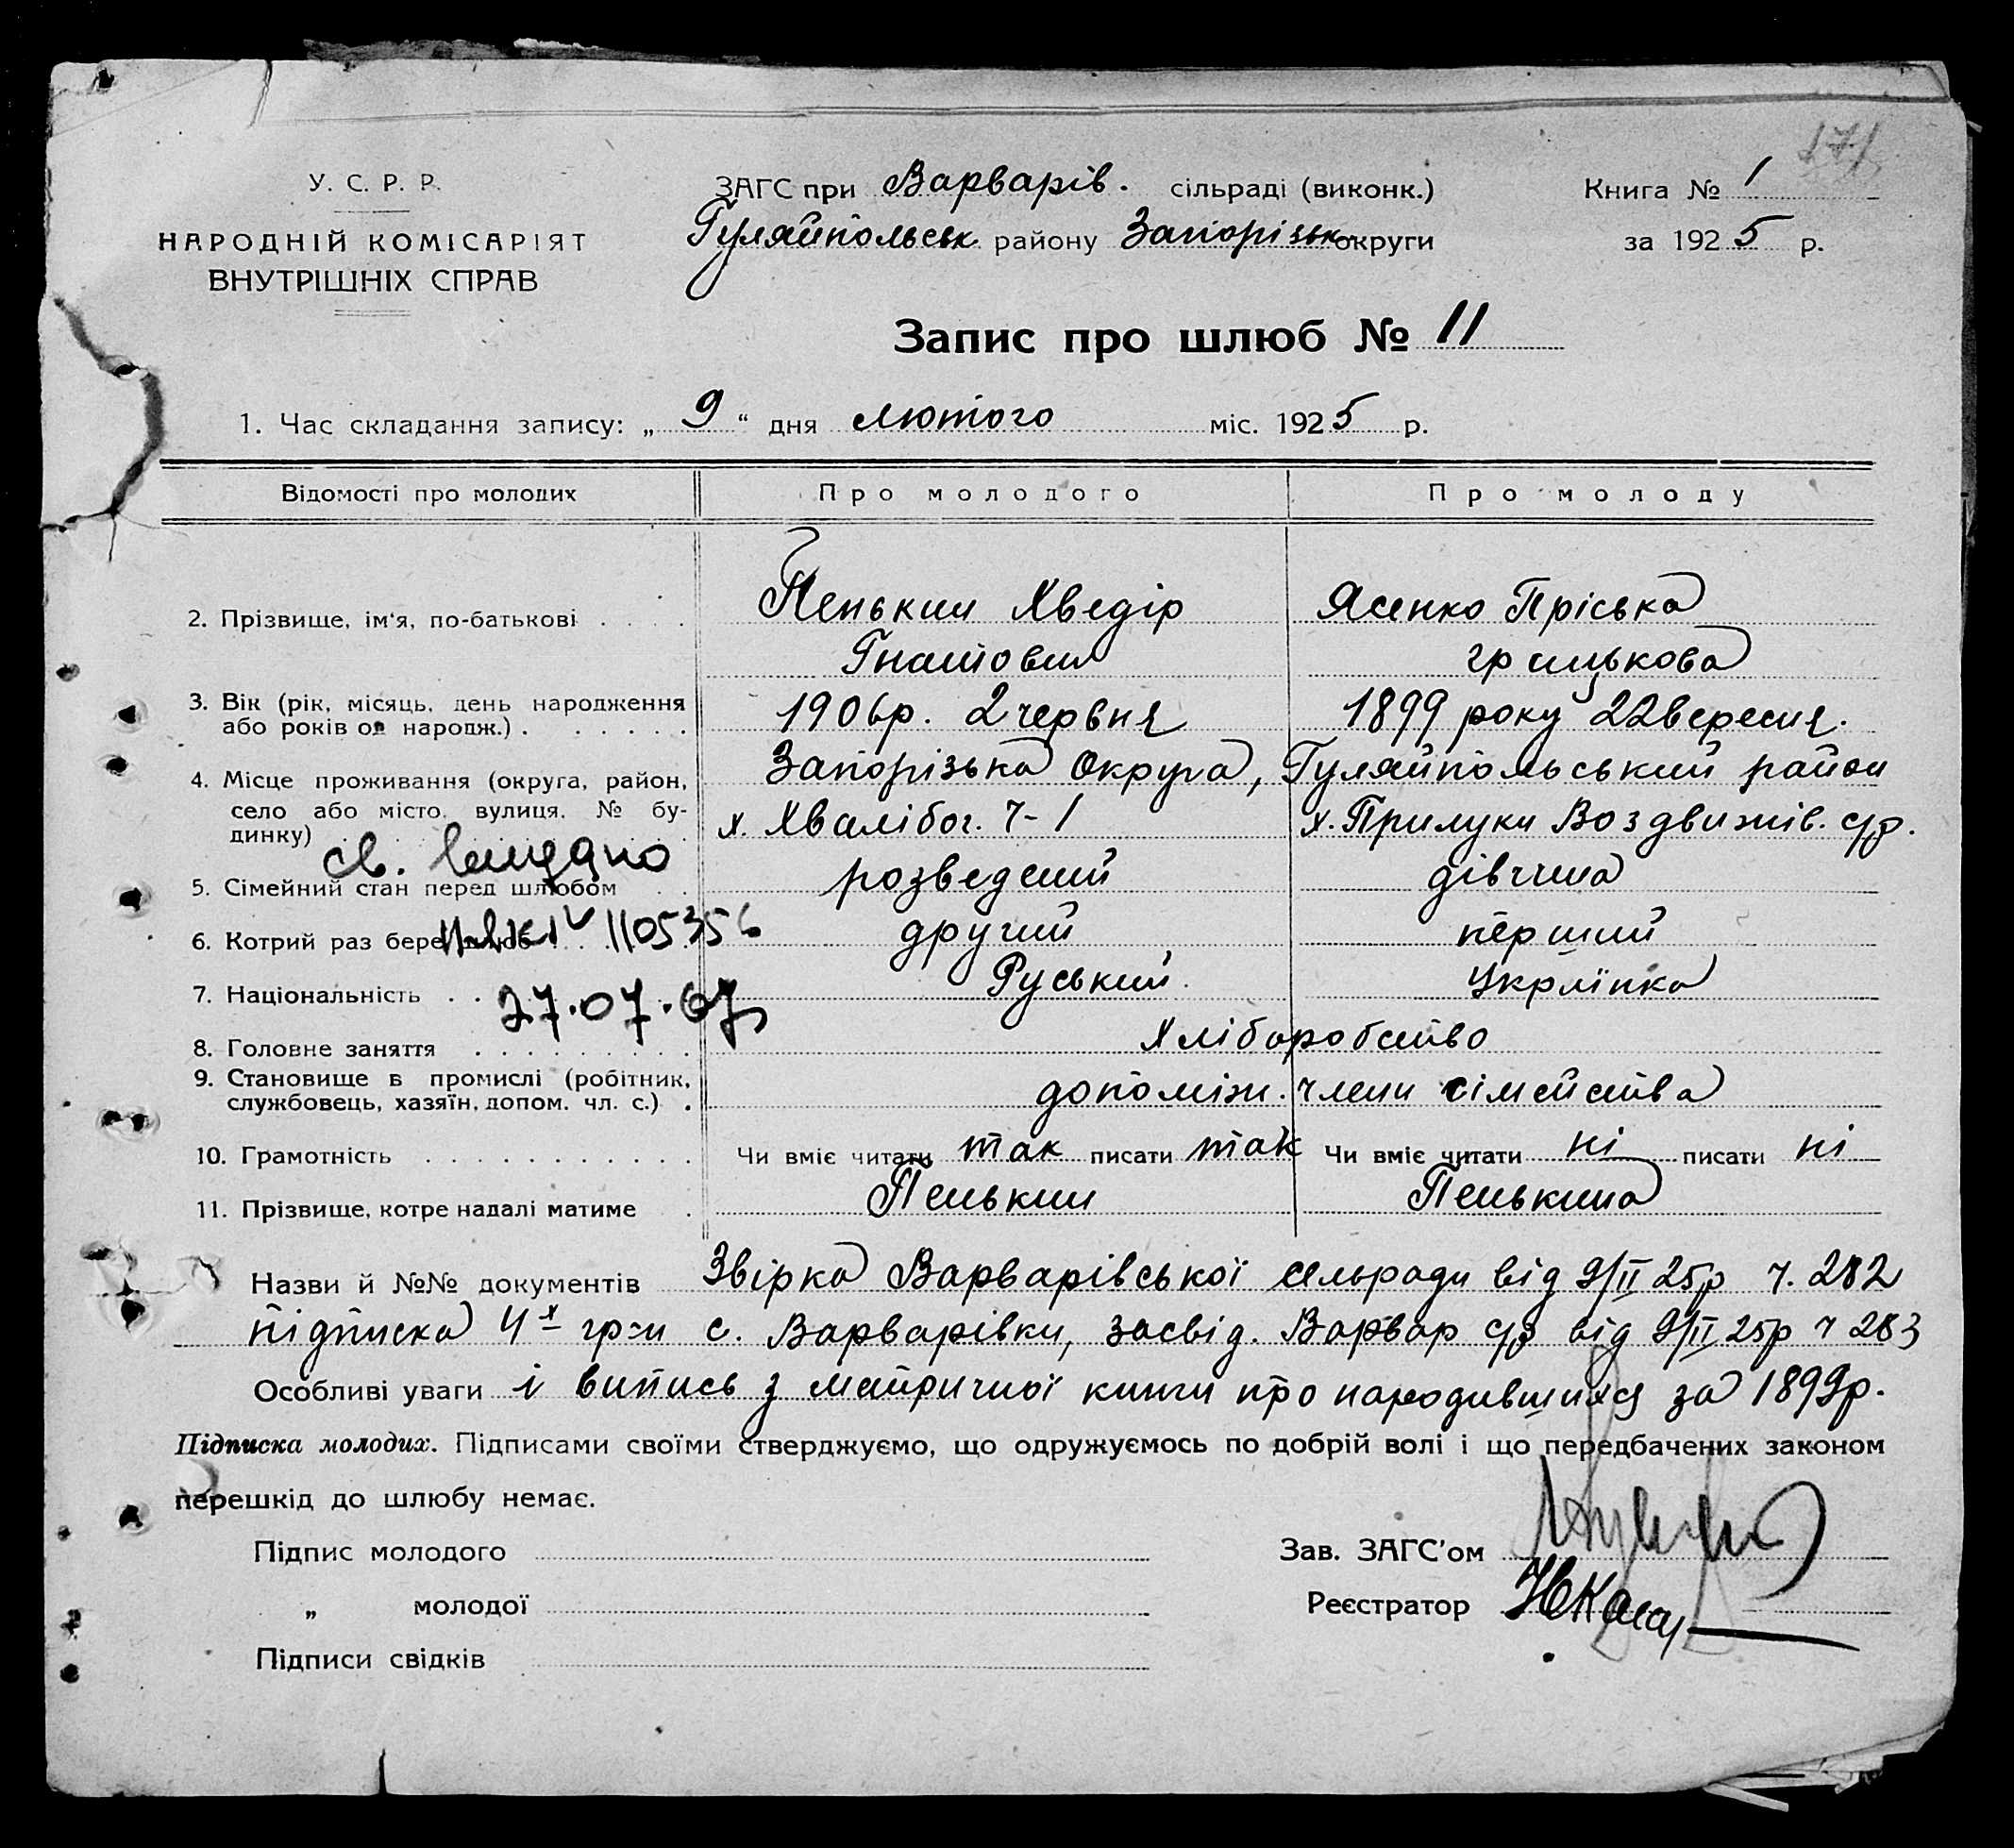 171
У. С. Р. Р.
НАРОДНІЙ КОМІСАРІЯТ
ВНУТРІШНІХ СПРАВ
ЗАГС при Варварів. сільраді (виконк.)
Гуляйпольськ району Запорізьк округи
Книга № 1
за 1925 р.
Запис про шлюб № 11
1. Час складання запису: „ 9 “ дня лютого міс. 1925 р.
Відомості про молодих
Про молодого
Про молоду
2. Прізвище, ім'я, по-батькові . . . .
Пенькин Хведір
Гнатович
Ясенко Пріська
грицькова
3. Вік (рік, місяць, день народження
або років од народж.) . . . . . .
1906р. 2 червня
1899 року 22 вересня.
4. Місце проживання (округа, район,
село або місто, вулиця, № бу-
динку)
Запорізька Округа, Гуляйпольський район
х. Хвалібог. ч-1
х. Прилуки Воздвижів. с/р.
св. видано
5. Сімейний стан перед шлюбом . .
розведений
дівчина
6. Котрий раз бере шлюб . .
1105356
другий
перший
7. Національність . .
27.07.67
Руський.
Українка
8. Головне заняття . . . . . . . . .
Хліборобство
9. Становище в промислі (робітник,
службовець, хазяїн, допом. чл. с.) .
допоміжн. члени сімейства
10. Грамотність . . . . . . . . . . .
Чи вміє читати так писати так
Чи вміє читати ні писати ні
11. Прізвище, котре надалі матиме .
Пенькин
Пенькина
Назви й №№ документів Звірка Варварівської сельради від 9/II 25р ч. 282
підписка 4х гр-н с. Варварівки, засвід. Варвар с/р від 9/II 25р ч 283
Особливі уваги і випись з метричної книги про народившихся за 1899р.
Підписка молодих. Підписами своїми стверджуємо, що одружуємось по добрій волі і що передбачених законом
перешкід до шлюбу немає.
Підпис молодого
„ молодої
Підписи свідків
Зав. ЗАГС'ом
Реєстратор